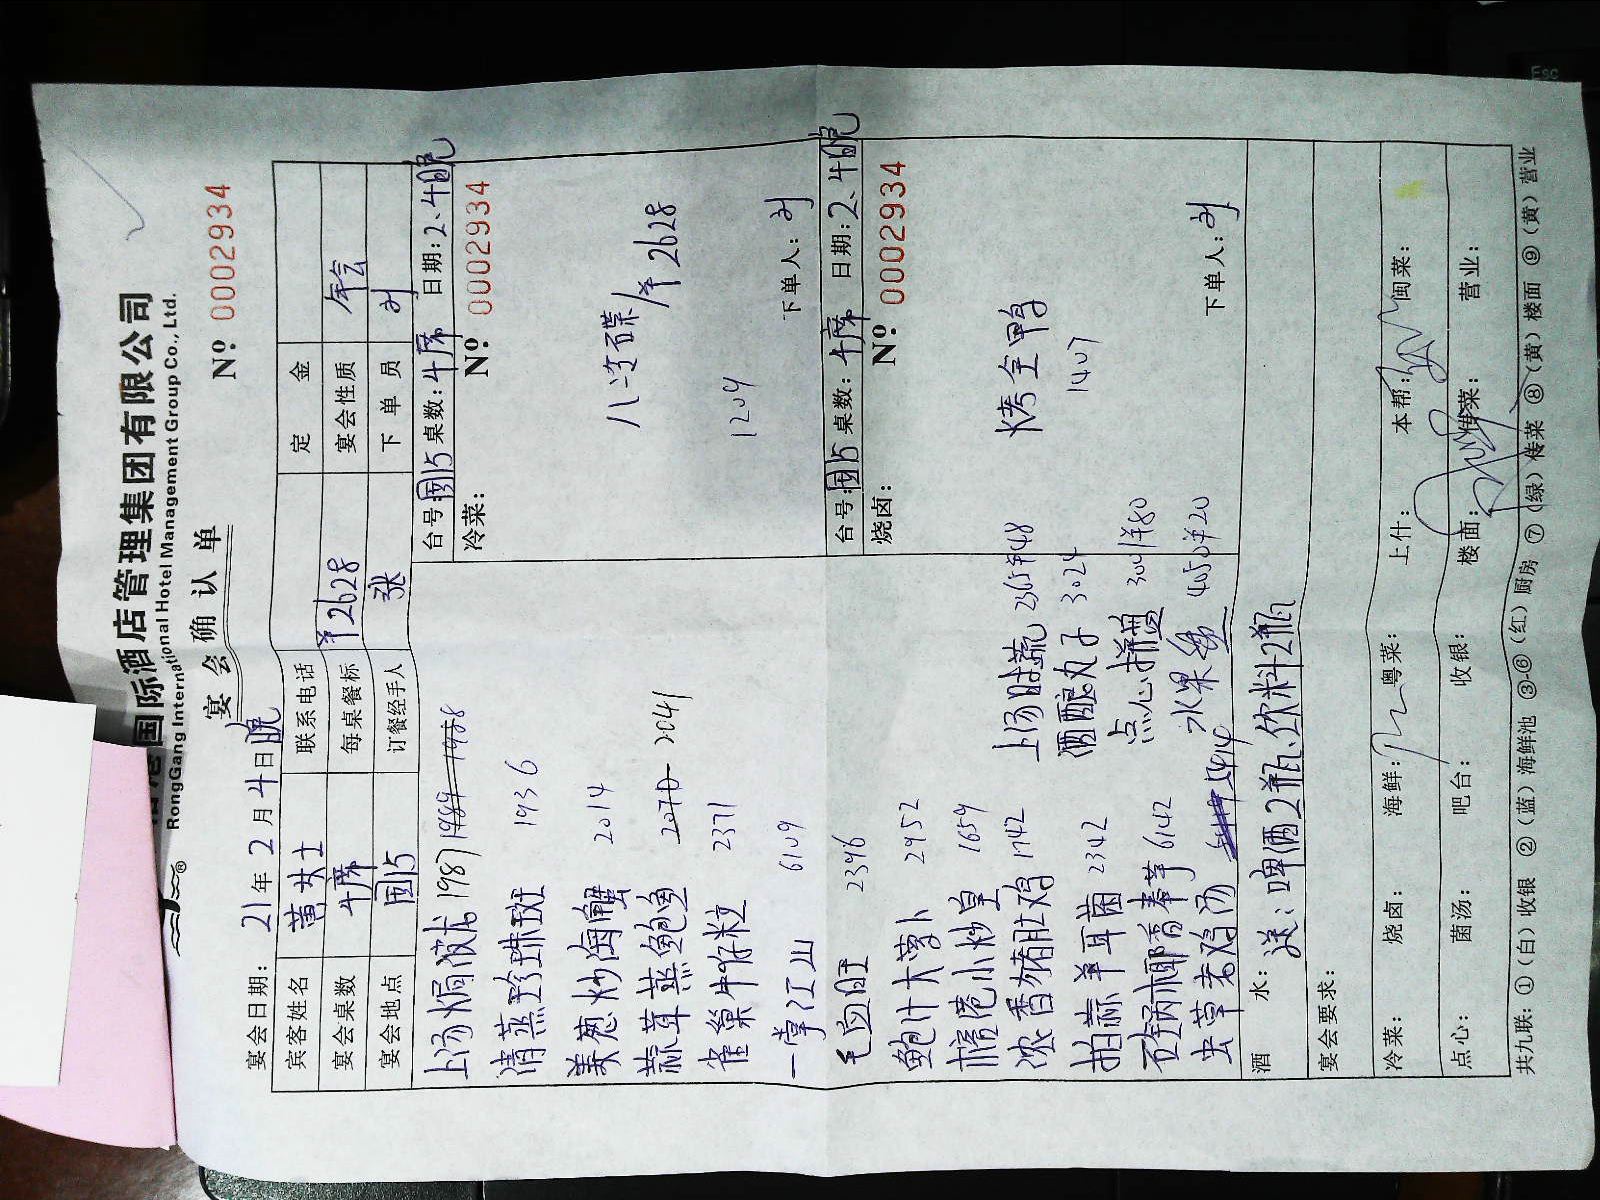 国际酒店管理集团有限公司
RongGang International Hotel Management Group Co., Ltd.
宴会确认单
宴会日期：21年2月4日晚
Nº 0002934
宾客姓名 黄女士 联系电话 定金
宴会桌数 4席 每桌餐标 ¥2628 宴会性质 年会
宴会地点 国15 订餐经手人 张 下单员 刘
上汤焗波龙 1987
清蒸珍珠斑 1936
美葱炒海蟹 2014
蒜茸蒸鲍鱼 2041
雀巢牛仔粒 2371
一掌江山 6109
毛血旺 2396
鲍汁大萝卜 2952
小炒皇 1659
浓香猪肚鸡 1742
拍蒜羊耳菌 2342
椰香奉芋 6142
虫草老鸡汤 5414
上汤时蔬 2365 ¥48
酒酿丸子 3024
点心拼盘 3001 ¥80
水果 4050 ¥20
台号：国15 桌数：4席 日期：2、4晚
冷菜：
Nº 0002934
八味碟/席 2628
1209
下单人：刘
台号：国15 桌数：4席 日期：2、4晚
烧卤：
Nº 0002934
烤全鸭
1407
下单人：刘
酒水：送：啤酒2瓶、饮料2瓶
宴会要求：
冷菜： 烧卤： 海鲜： 粤菜： 上什： 本帮： 闽菜：
点心： 菌汤： 吧台： 收银： 楼面： 传菜： 营业：
共九联：①（白）收银 ②（蓝）海鲜池 ③-⑥（红）厨房 ⑦（绿）传菜 ⑧（黄）楼面 ⑨（黄）营业